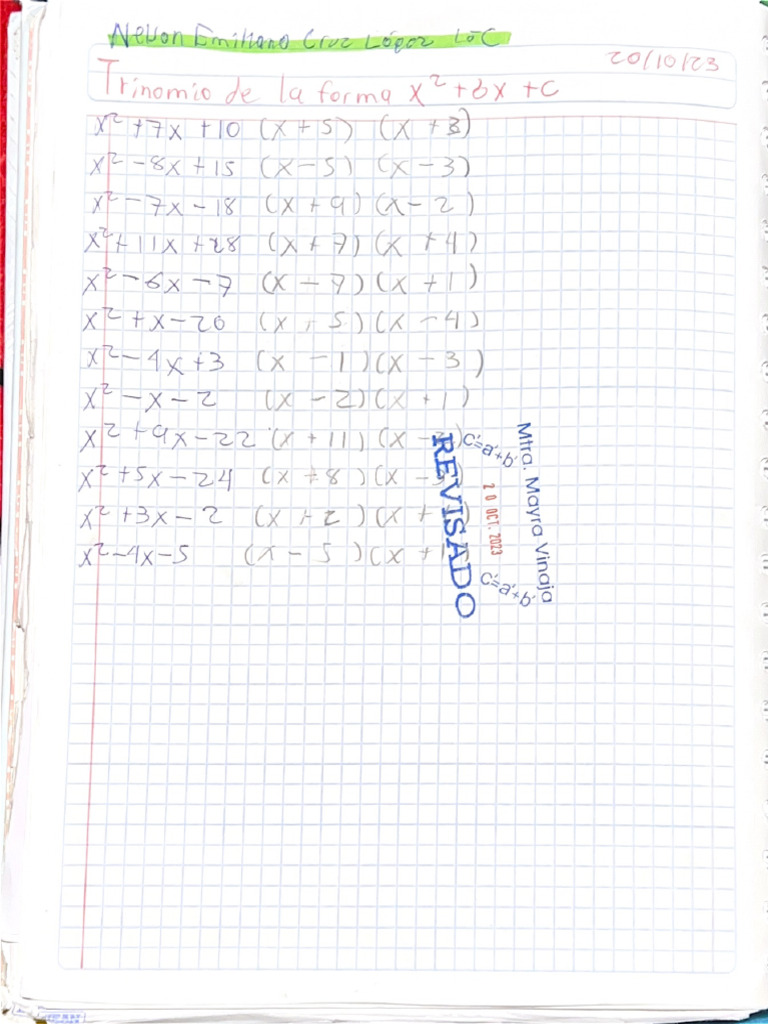 Nelson Emiliano Cruz López 1°C
20/10/23
Trinomio de la forma x² + bx + c
x² + 7x + 10 (x + 5) (x + 3)
x² - 8x + 15 (x - 5) (x - 3)
x² - 7x - 18 (x + 9) (x - 2)
x² + 11x + 28 (x + 7) (x + 4)
x² - 6x - 7 (x - 7) (x + 1)
x² + x - 20 (x + 5) (x - 4)
x² - 4x + 3 (x - 1) (x - 3)
x² - x - 2 (x - 2) (x + 1)
x² + 9x - 22 (x + 11) (x -
x² + 5x - 24 (x + 8) (x -
x² + 3x - 2 (x + 2) (x +
x² - 4x - 5 (x - 5) (x + 1
REVISADO
c²=a²+b²
20 OCT. 2023
c²=a²+b²
Mtra. Mayra Vinaja